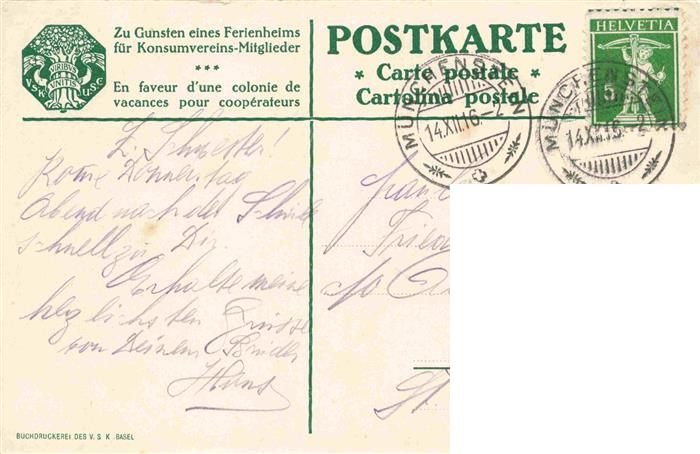 VIRIBUS
UNITIS
V·S·K·
U·S·C·
Zu Gunsten eines Ferienheims
für Konsumvereins-Mitglieder
***
En faveur d'une colonie de
vacances pour coopérateurs
POSTKARTE
* Carte postale *
Cartolina postale
HELVETIA
5
MÜNCHENSTEIN
14.XII.16.-2
MÜNCHENSTEIN
14.XII.16.-2
L. Schwester!
Komme Donnerstag
Abend nach der Schule
schnell zu Dir.
Erhalte meine
herzlichsten Grüsse
von Deinem Bruder
Hans
c/o
St.
BUCHDRUCKEREI DES V. S. K. BASEL